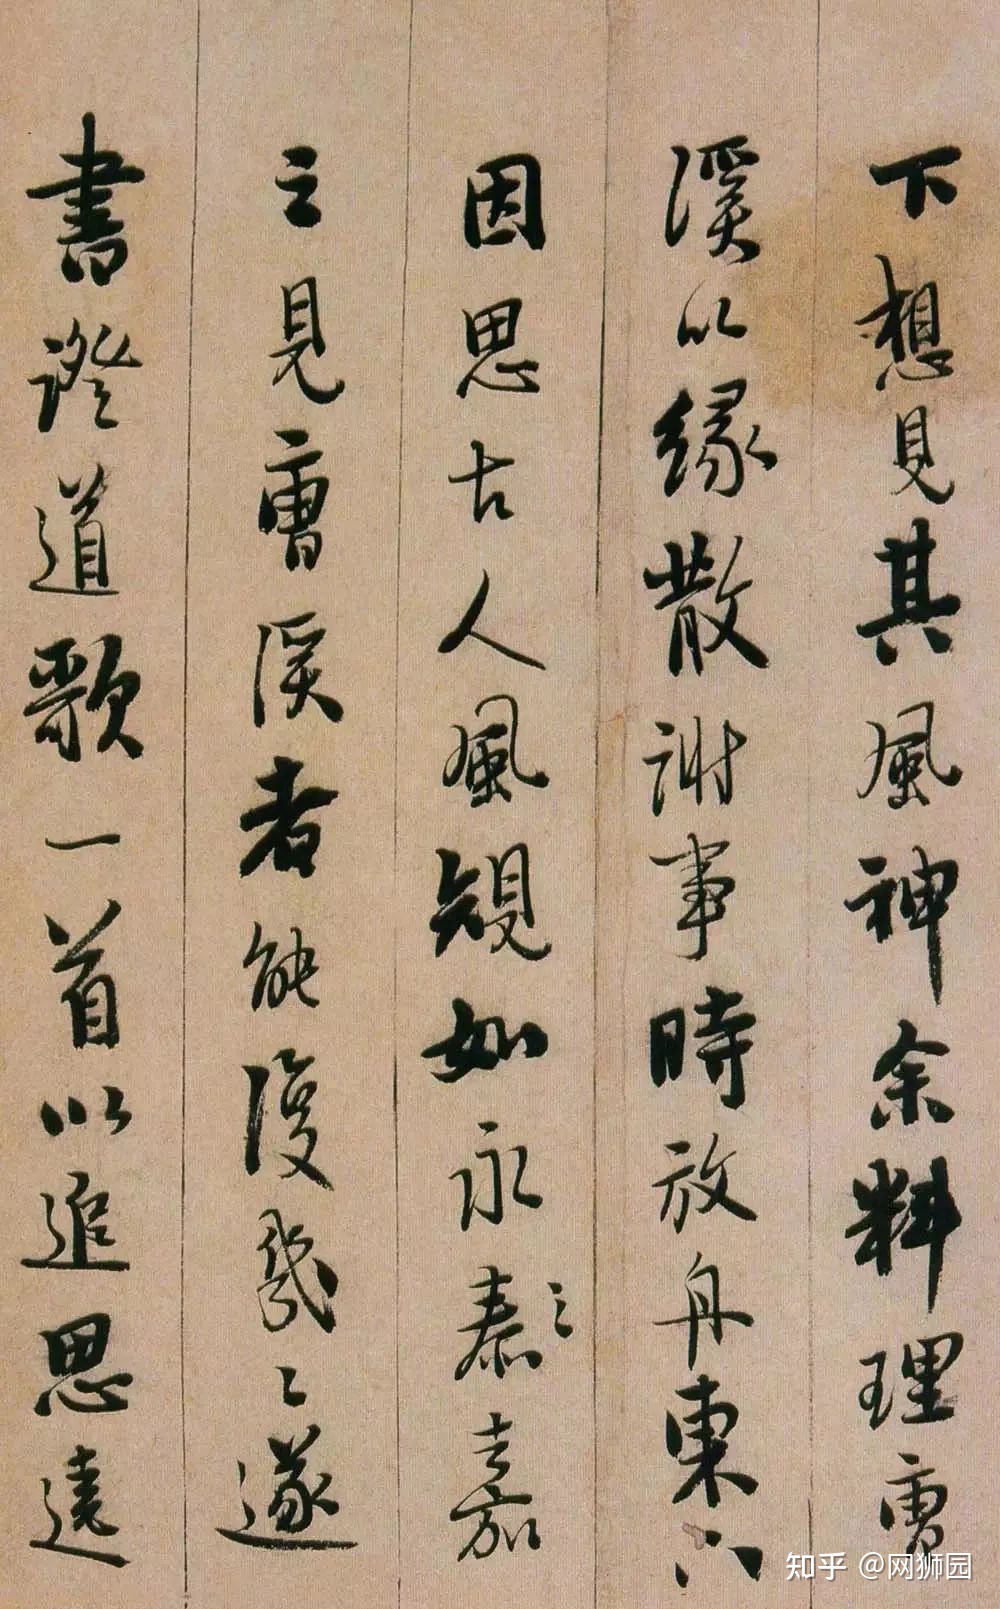 下想見其風神余料理曹
溪以緣散謝事時放舟東下
因思古人風規如永泰嘉
之見曹溪者能復幾々遂
書證道歌一首以追思遠
知乎 @网狮园